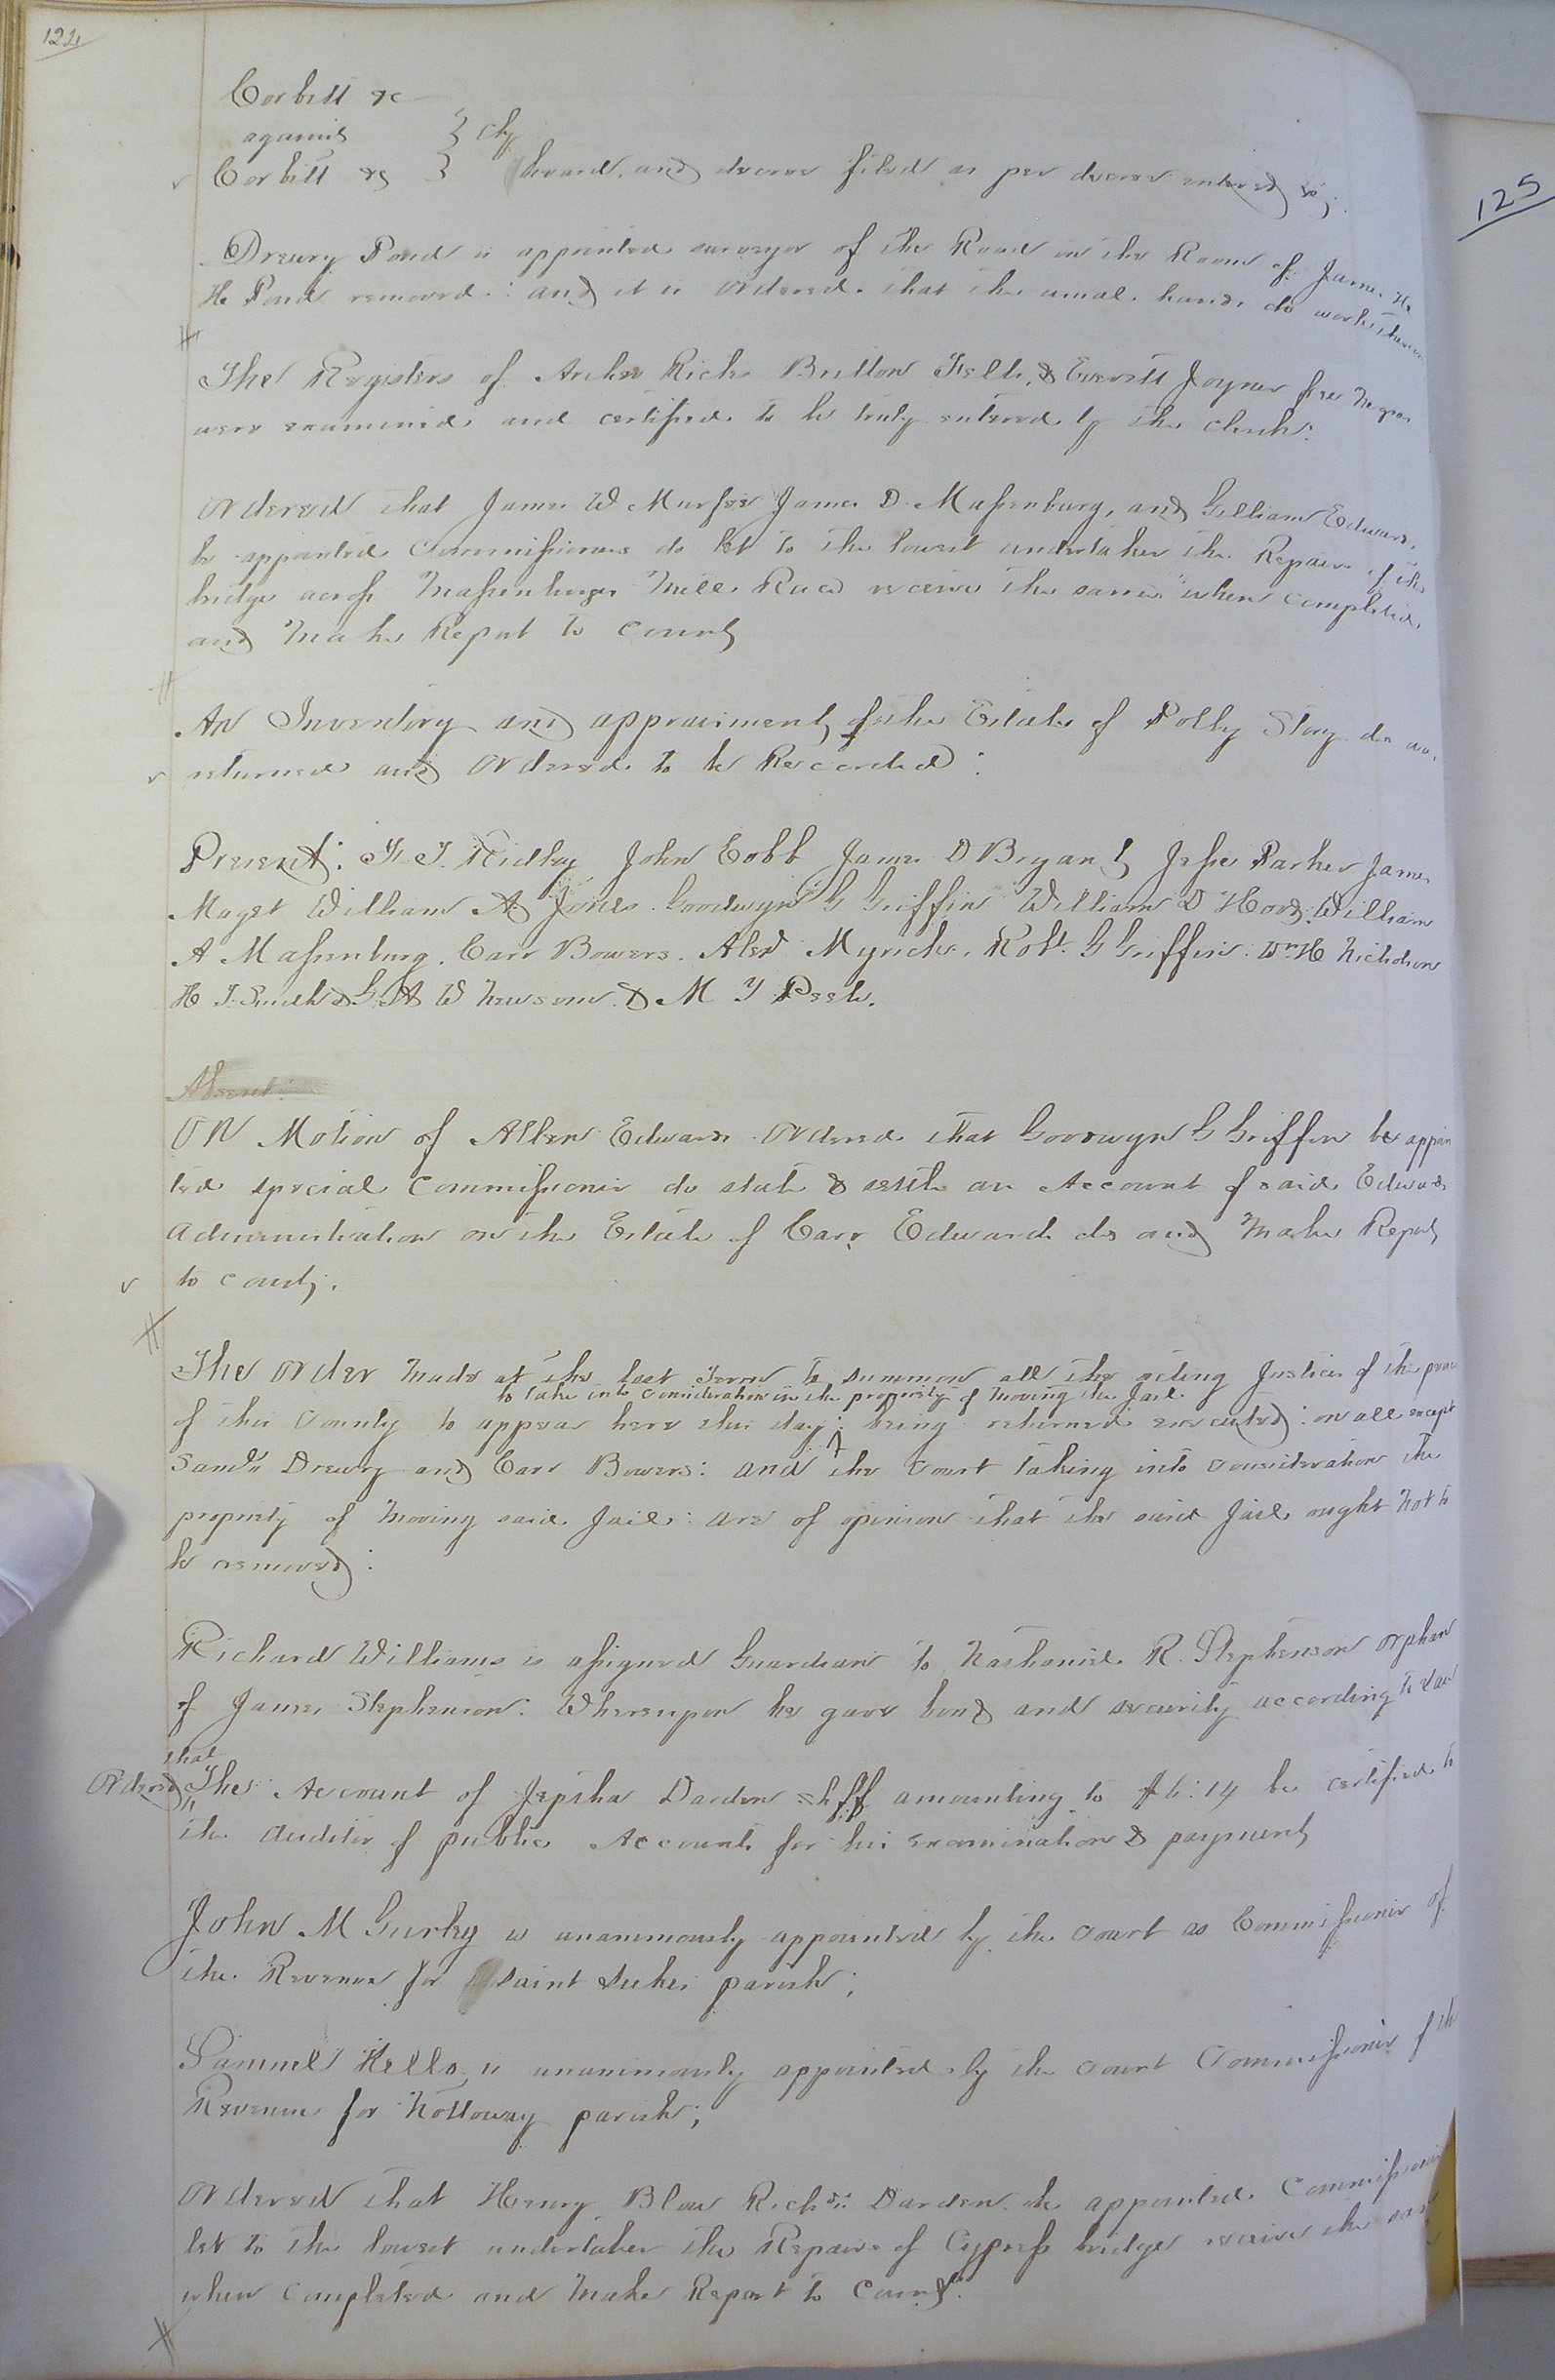 124
125
Corbitt &c
against } Chy
Corbitt &c } heard, and decree filed as per decree entered &c;
Drewry Pond is appointed surveyor of the Road in the Room of James H
H Pond removed: and it is ordered that the usual hands do work thereon
The Registers of Archer Ricks Britton Fells, & Everett Joyner free Negroes
were examined and certified to be truly entered by the clerk:
Ordered that James W Murfee James D Massenburg, and Gilliam Edwards
be appointed Commissioners do let to the lowest undertaker the Repairs of the
bridge across Massenburgs Mill Race receive the same when completed
and Make Report to Court
An Inventory and appraisment of the Estate of Polly Story de was
returned and Ordered to be Recorded:
Present: F. T. Ridley John Cobb James D Bryant Jesse Parker James
Maget William A Jones Goodwyn G Griffin William D Hood William
A Massenburg. Carr Bowers. Alexr Myrick. Robt. G Griffin. Wm H Nicholson
H J. Smith & G. A W Newsom & M Y Peete.
Absent:
On Motion of Allen Edwards Ordered that Goodwyn G Griffin be appoin
ted special Commissioner do state & settle an Account of said Edwards
administration on the Estate of Carr Edwards de and Make Report
to court;
The order Made at the last Term to summon all the acting Justices of the peace
to take into consideration in the propriety of moving the Jail
of this County to appear here this day: being returned executed: on all except
Saml Drewry and Carr Bowers: and the Court taking into consideration the
propriety of moving said Jail: are of opinion that the said Jail ought Not to
be removed:
Richard Williams is assigned Guardian to Nathaniel R. Stephenson orphan
of James Stephenson: Whereupon he gave bond and security according to law
that
Ordered The Account of Jepsha Darden shff amounting to $6:14 be certified to
the Auditor of public Accounts for his examination & payment
John M Gurley is unanimously appointed by the Court as Commissioner of
the Revenue for Saint Lukes parish;
Samuel Kello is unanimously appointed by the Court Commissioner of the
Revenue for Nottoway parish;
Ordered that Henry Blow Richd: Darden be appointed Commissioners
let to the lowest undertaker the Repairs of Cypress bridge receive the same
when Completed and Make Report to Court: